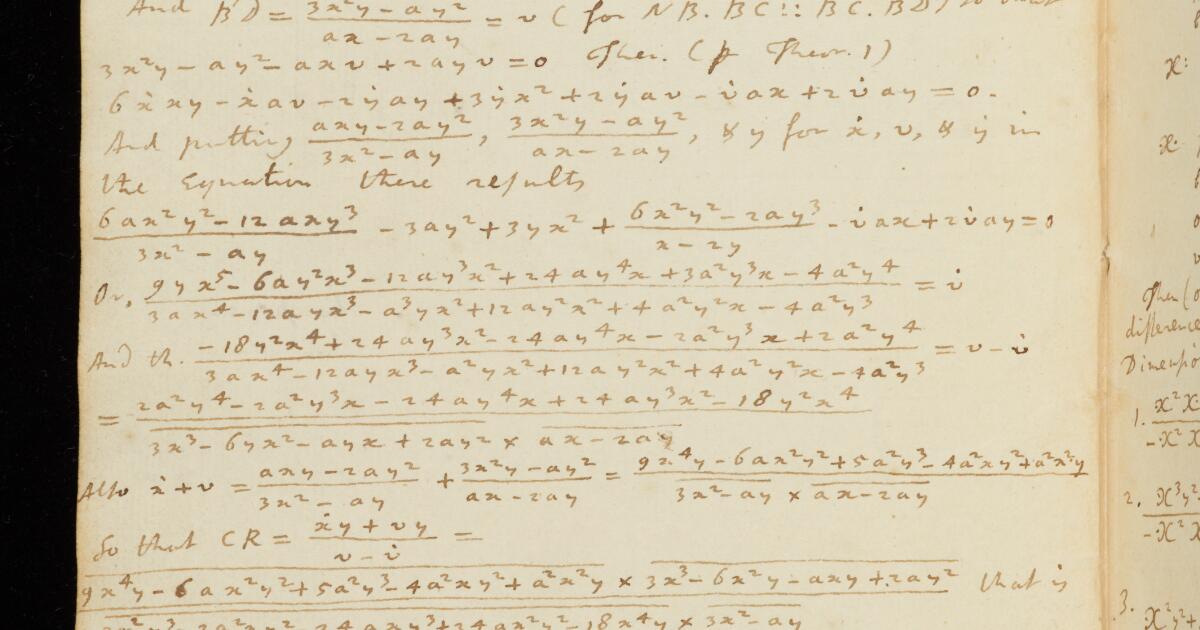 And BD = (3x²y − ay²)/(ax − 2ay) = v ( for NB. BC :: BC. BD)
3x²y − ay² − axv + 2ayv = 0 Then. (p Theor. 1)
6ẋxy − ẋav − 2ẏay + 3ẏx² + 2ẏav − v̇ax + 2v̇ay = 0.
And putting (axy − 2ay²)/(3x² − ay), (3x²y − ay²)/(ax − 2ay), & y for ẋ, v, & ẏ in
the Equation there results
(6ax²y² − 12axy³)/(3x² − ay) − 3ay² + 3yx² + (6x²y² − 2ay³)/(x − 2y) − v̇ax + 2v̇ay = 0
Or, (9yx⁵ − 6ay²x³ − 12ay³x² + 24ay⁴x + 3a²y³x − 4a²y⁴)/(3ax⁴ − 12ayx³ − a³yx² + 12ay²x² + 4a²y²x − 4a²y³) = v̇
And th. (−18y²x⁴ + 24ay³x² − 24ay⁴x − 2a²y³x + 2a²y⁴)/(3ax⁴ − 12ayx³ − a²yx² + 12ay²x² + 4a²y²x − 4a²y³) = v − v̇
= (2a²y⁴ − 2a²y³x − 24ay⁴x + 24ay³x² − 18y²x⁴)/(3x³ − 6yx² − ayx + 2ay² × ax − 2ay)
Also ẋ + v = (axy − 2ay²)/(3x² − ay) + (3x²y − ay²)/(ax − 2ay) = (9x⁴y − 6ax²y² + 5a²y³ − 4a²xy² + a²x²y)/(3x² − ay × ax − 2ay)
So that CR = (ẋy + vy)/(v − v̇) =
9x⁴y − 6ax²y² + 5a²y³ − 4a²xy² + a²x²y × 3x³ − 6x²y − axy + 2ay² that is
− 2a²xy² − 24axy³ + 24ax²y² − 18x⁴y × 3x² − ay
x:
x:
Then (
difference
Dimensio
1. x²x
−x²x
2. x³y²
−x²x
3. x²y²+